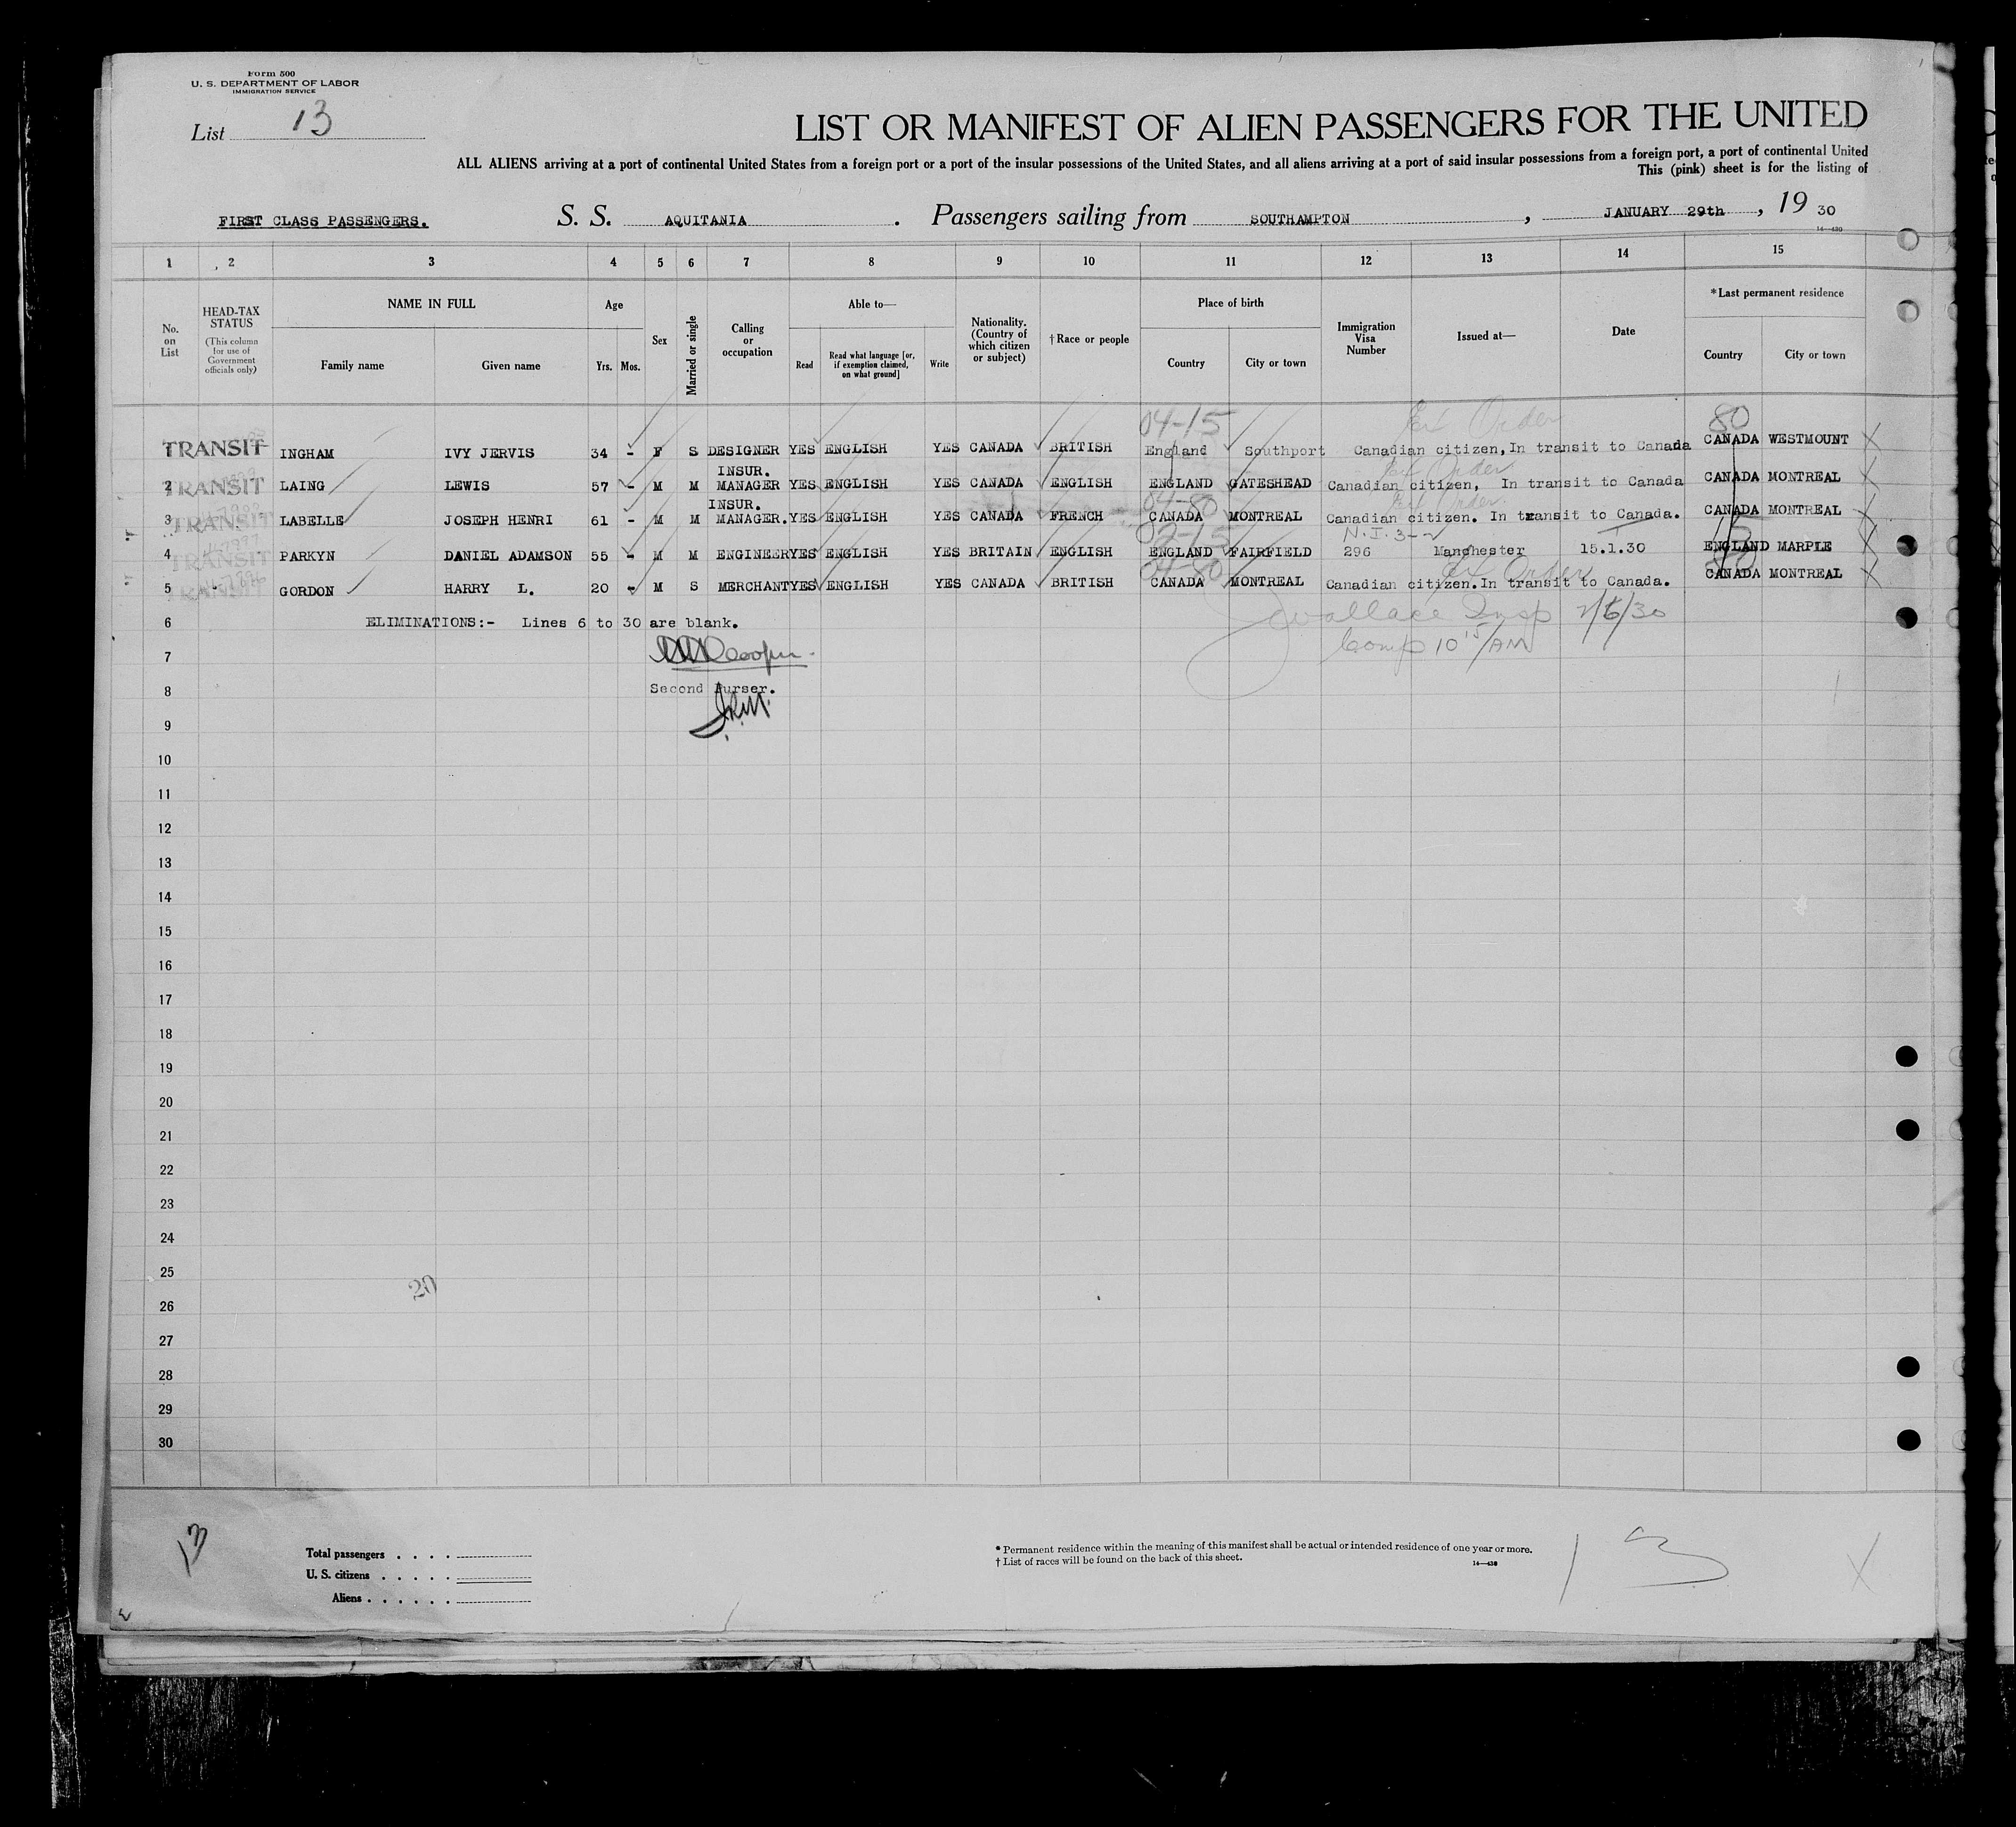 Form 500
U. S. DEPARTMENT OF LABOR
IMMIGRATION SERVICE
List 13
LIST OR MANIFEST OF ALIEN PASSENGERS FOR THE UNITED
ALL ALIENS arriving at a port of continental United States from a foreign port or a port of the insular possessions of the United States, and all aliens arriving at a port of said insular possessions from a foreign port, a port of continental United
This (pink) sheet is for the listing of
FIRST CLASS PASSENGERS. S. S. AQUITANIA . Passengers sailing from SOUTHAMPTON , JANUARY 29th , 19 30
14—430
1 2 3 4 5 6 7 8 9 10 11 12 13 14 15
No. on List
HEAD-TAX STATUS (This column for use of Government officials only)
NAME IN FULL
Family name Given name
Age
Yrs. Mos.
Sex
Married or single
Calling or occupation
Able to—
Read
Read what language [or, if exemption claimed, on what ground]
Write
Nationality. (Country of which citizen or subject)
†Race or people
Place of birth
Country City or town
Immigration Visa Number
Issued at—
Date
*Last permanent residence
Country City or town
04-15 Ex Order 80
1 TRANSIT INGHAM IVY JERVIS 34 - F S DESIGNER YES ENGLISH YES CANADA BRITISH England Southport Canadian citizen, In transit to Canada CANADA WESTMOUNT
INSUR. Ex Order
2 TRANSIT LAING LEWIS 57 - M M MANAGER YES ENGLISH YES CANADA ENGLISH ENGLAND GATESHEAD Canadian citizen, In transit to Canada CANADA MONTREAL
INSUR. 04-80 Ex Order
3 TRANSIT LABELLE JOSEPH HENRI 61 - M M MANAGER. YES ENGLISH YES CANADA FRENCH CANADA MONTREAL Canadian citizen. In transit to Canada. CANADA MONTREAL
02-15 N.I. 3-2 15
4 TRANSIT PARKYN DANIEL ADAMSON 55 - M M ENGINEER YES ENGLISH YES BRITAIN ENGLISH ENGLAND FAIRFIELD 296 Manchester 15.1.30 ENGLAND MARPLE
04-80 Ex Order
5 TRANSIT GORDON HARRY L. 20 - M S MERCHANT YES ENGLISH YES CANADA BRITISH CANADA MONTREAL Canadian citizen. In transit to Canada. CANADA MONTREAL
6 ELIMINATIONS:- Lines 6 to 30 are blank. Wallace Insp 2/5/30
7 Cooper Comp 10 15/AM
8 Second Purser.
9
10
11
12
13
14
15
16
17
18
19
20
21
22
23
24
25
20
26
27
28
29
30
13
Total passengers . . . .
U. S. citizens . . . . .
Aliens . . . . . .
* Permanent residence within the meaning of this manifest shall be actual or intended residence of one year or more.
† List of races will be found on the back of this sheet.
14—430
13 X